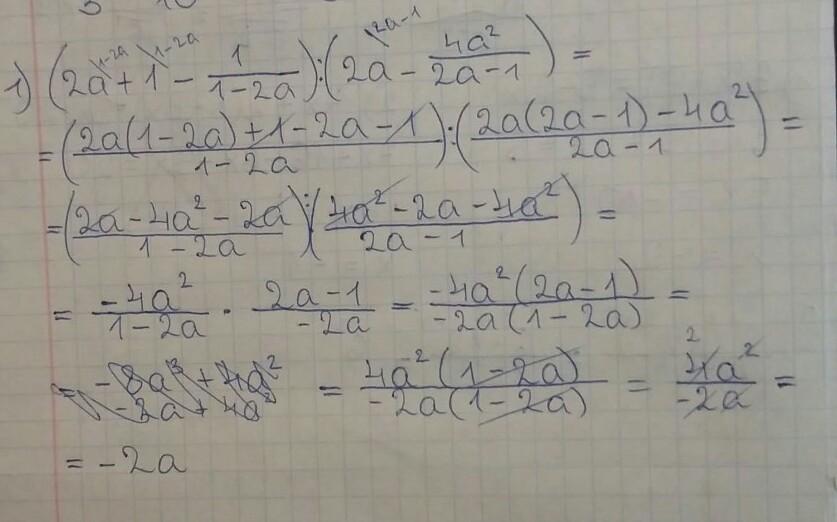 1) (2a^{\1-2a} + 1^{\1-2a} - 1/(1-2a)) : (2a^{\2a-1} - 4a²/(2a-1)) =
= ((2a(1-2a)+1-2a-1)/(1-2a)) : ((2a(2a-1)-4a²)/(2a-1)) =
= ((2a-4a²-2a)/(1-2a)) : ((4a²-2a-4a²)/(2a-1)) =
= -4a²/(1-2a) · (2a-1)/(-2a) = -4a²(2a-1)/(-2a(1-2a)) =
= (-8a³+4a²)/(-2a+4a²) = 4a²(1-2a)/(-2a(1-2a)) = ²4a²/(-2a) =
= -2a